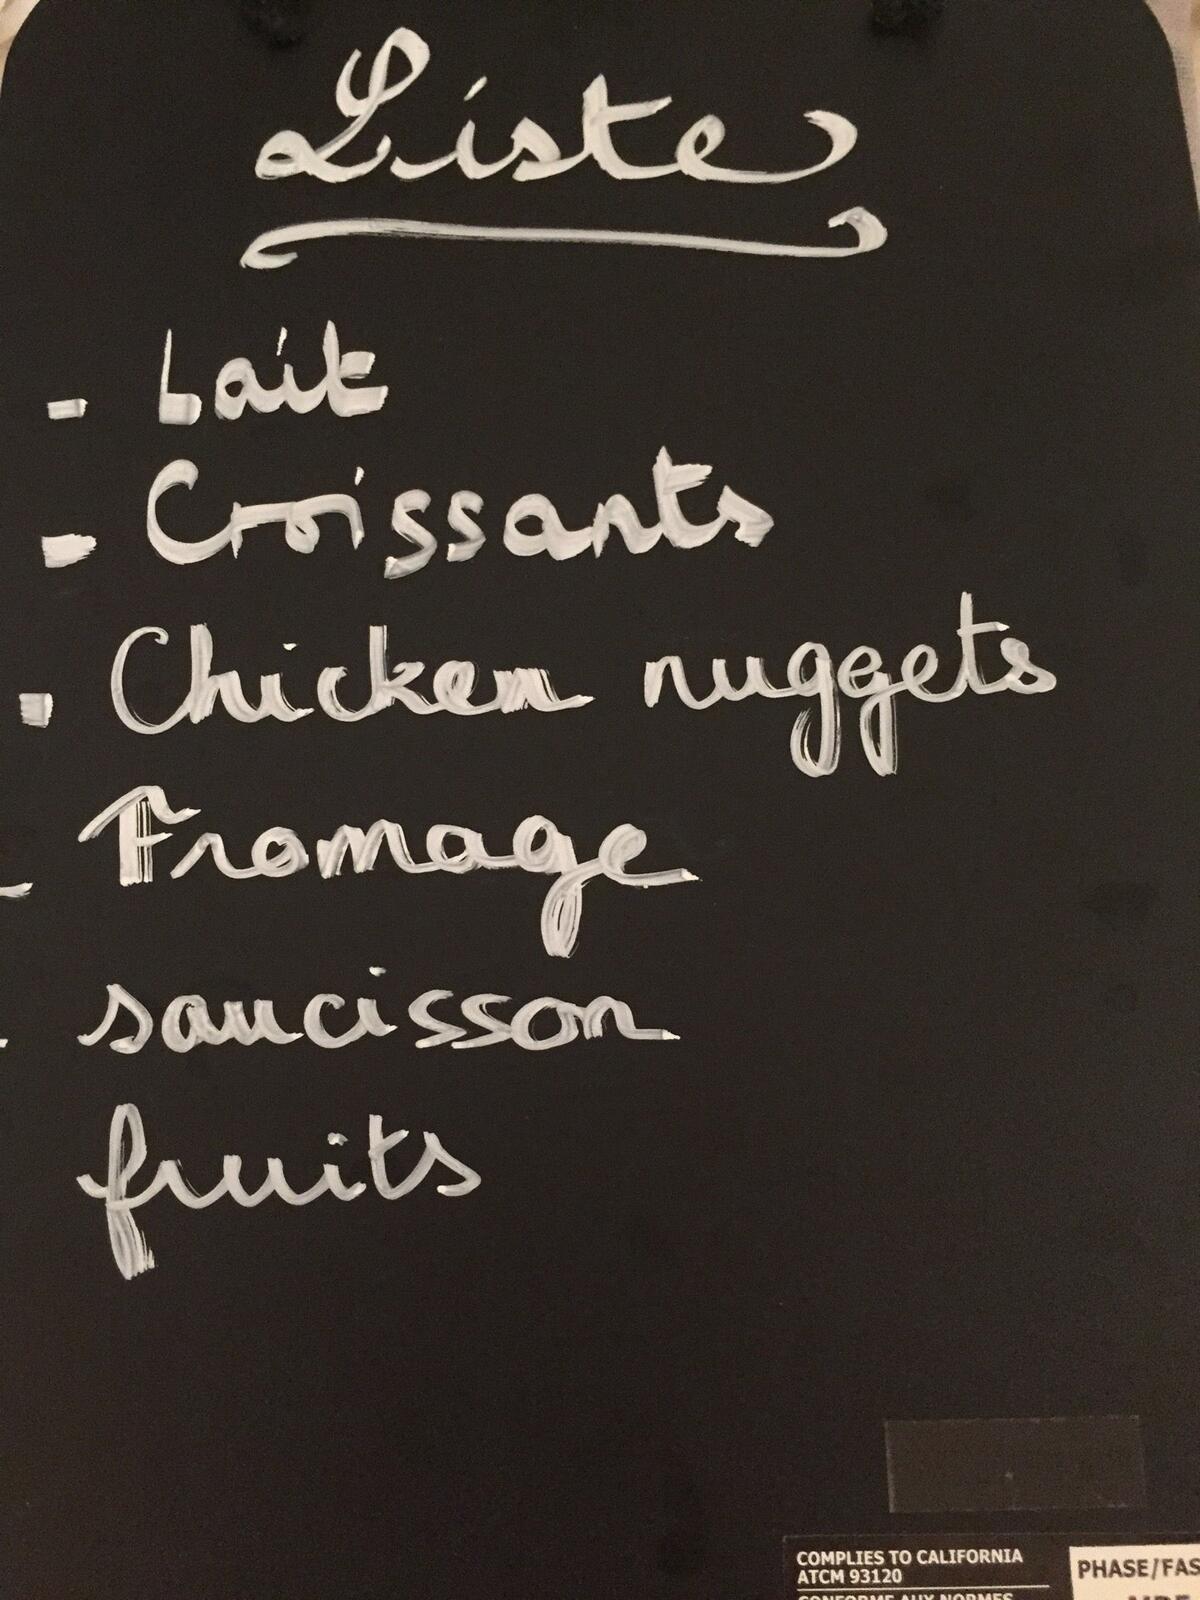 Liste
- Lait
- Croissants
- Chicken nuggets
- Fromage
- saucisson
fruits
COMPLIES TO CALIFORNIA
ATCM 93120
CONFORME AUX NORMES
PHASE/FAS